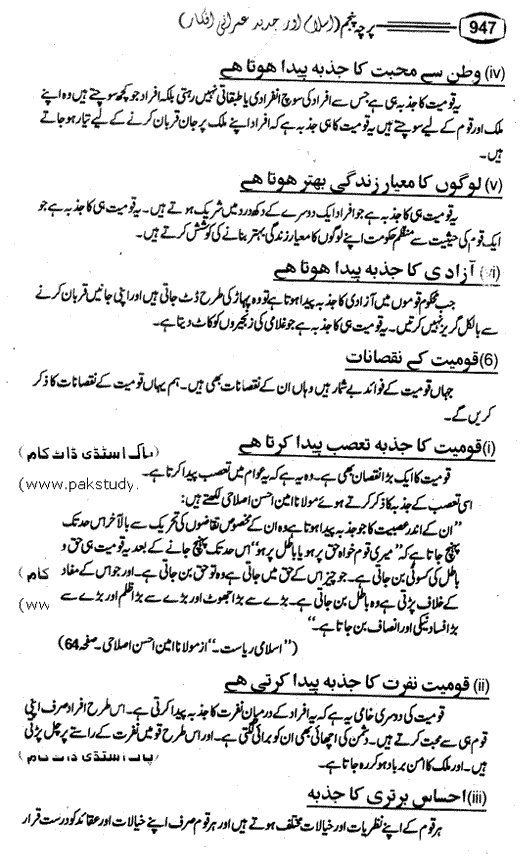 947 پرچہ پنجم (اسلام اور جدید عمرانی افکار)
(iv) وطن سے محبت کا جذبہ پیدا ہوتا ہے
یہ قومیت کا جذبہ ہی ہے جس سے افراد کی سوچ انفرادی یا طبقاتی نہیں رہتی بلکہ افراد جو کچھ سوچتے ہیں وہ اپنے
ملک اور قوم کے لیے سوچتے ہیں یہ قومیت کا ہی جذبہ ہے کہ افراد اپنے ملک پر جان قربان کرنے کے لیے تیار ہو جاتے
ہیں۔
(v) لوگوں کا معیار زندگی بہتر ہوتا ہے
یہ قومیت ہی کا جذبہ ہے جو افراد ایک دوسرے کے دکھ درد میں شریک ہوتے ہیں۔ یہ قومیت ہی کا جذبہ ہے جو
ایک قوم کی حیثیت سے منظم حکومت اپنے لوگوں کا معیار زندگی بہتر بنانے کی کوشش کرتے ہیں۔
(vi) آزادی کا جذبہ پیدا ہوتا ہے
جب محکوم قوموں میں آزادی کا جذبہ پیدا ہوتا ہے تو وہ پہاڑ کی طرح ڈٹ جاتی ہیں اور اپنی جانیں قربان کرنے
سے بالکل گریز نہیں کرتیں۔ یہ قومیت ہی کا جذبہ ہے جو غلامی کی زنجیروں کو کاٹ دیتا ہے۔
(6) قومیت کے نقصانات
جہاں قومیت کے فوائد بے شمار ہیں وہاں ان کے نقصانات بھی ہیں۔ ہم یہاں قومیت کے نقصانات کا ذکر
کریں گے۔
(i) قومیت کا جذبہ تعصب پیدا کرتا ہے
پاک اسٹڈی ڈاٹ کام)
قومیت کا ایک بڑا نقصان بھی ہے۔ وہ یہ ہے کہ یہ عوام میں تعصب پیدا کرتا ہے۔
(www.pakstudy.
اسی تعصب کے جذبہ کا ذکر کرتے ہوئے مولانا امین احسن اصلاحی لکھتے ہیں:
"ان کے اندر عصبیت کا جو جذبہ پیدا ہوتا ہے وہ ان کے مخصوص تقاضوں کی تحریک سے بالآخر اس حد تک
پہنچ جاتا ہے کہ "میری قوم خواہ حق پر ہو یا باطل پر ہو" اس حد تک پہنچ جانے کے بعد یہ قومیت ہی حق و
باطل کی کسوٹی بن جاتی ہے۔ جو چیز اس کے حق میں جاتی ہے وہ تو حق بن جاتی ہے۔ اور جو اس کے مفاد
کام)
کے خلاف پڑتی ہے وہ باطل بن جاتی ہے۔ بڑے سے بڑا جھوٹ اور بڑے سے بڑا ظلم اور بڑے سے
(ww
بڑا فساد نیکی اور انصاف بن جاتا ہے۔"
("اسلامی ریاست۔" از مولانا امین احسن اصلاحی۔ صفحہ 64)
(ii) قومیت نفرت کا جذبہ پیدا کرتی ہے
قومیت کی دوسری خامی یہ ہے کہ یہ افراد کے درمیان نفرت کا جذبہ پیدا کرتی ہے۔ اس طرح افراد صرف اپنی
قوم ہی سے محبت کرتے ہیں۔ دشمن کی اچھائی بھی ان کو برائی لگتی ہے۔ اور اس طرح قومیں نفرت کے راستے پر چل پڑتی
ہیں۔ اور ملک کا امن برباد ہو کر رہ جاتا ہے۔
پاک اسٹڈی ڈاٹ کام)
(iii) احساس برتری کا جذبہ
ہر قوم کے اپنے نظریات اور خیالات مختلف ہوتے ہیں اور ہر قوم صرف اپنے خیالات اور عقائد کو درست قرار